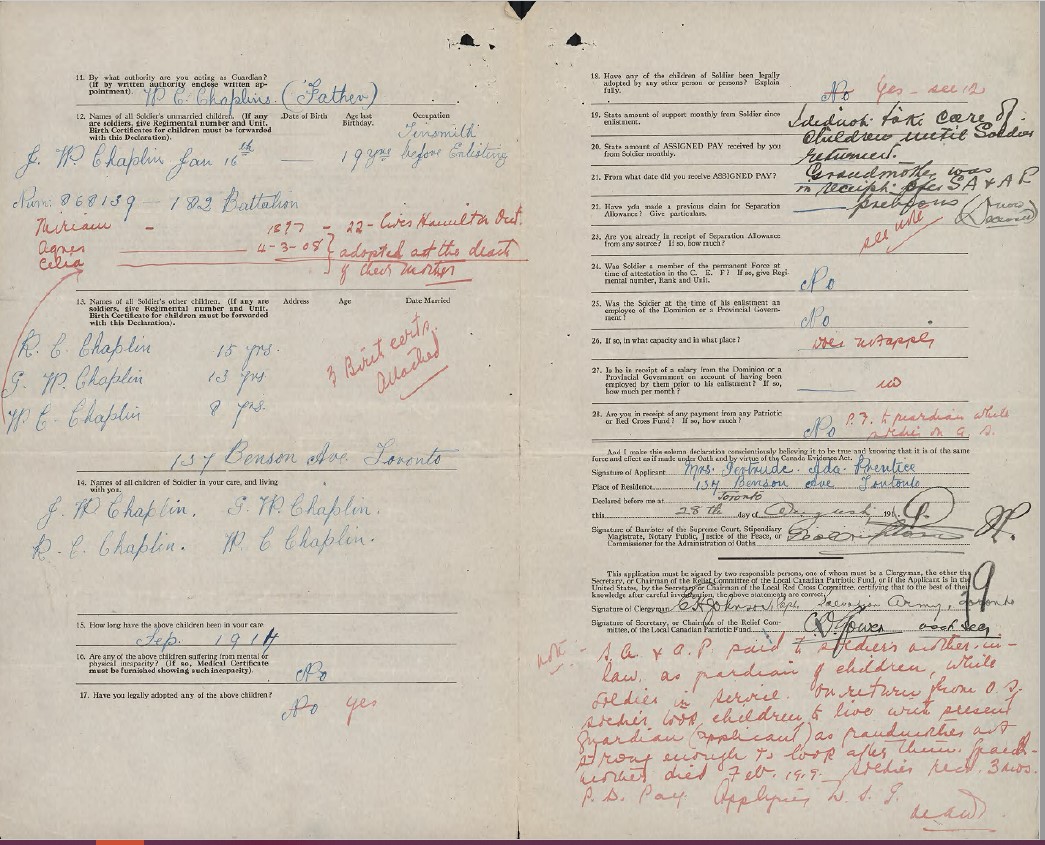 11. By what authority are you acting as Guardian?
(If by written authority enclose written ap-
pointment). W. C. Chaplins. (Father)
12. Names of all Soldier's unmarried children. (If any
are soldiers, give Regimental number and Unit.
Birth Certificates for children must be forwarded
with this Declaration).
Date of Birth Age last
Birthday. Occupation
Tinsmith
J. W. Chaplin Jan 16th — 19 yrs before Enlisting
Num: 868139 — 182 Battalion
Miriam - 1897 - 22 - Lives Hamilton Ont.
Agnes 4-3-08 } adopted at the death
Celia of their mother
13. Names of all Soldier's other children. (If any are
soldiers, give Regimental number and Unit,
Birth Certificate for children must be forwarded
with this Declaration).
Address Age Date Married
R. C. Chaplin 15 yrs.
G. W. Chaplin 13 yrs
W. C. Chaplin 8 yrs.
3 Birth certs.
Attached
137 Benson Ave Toronto
14. Names of all children of Soldier in your care, and living
with you.
J. W. Chaplin. G. W. Chaplin.
R. C. Chaplin. W. C Chaplin.
15. How long have the above children been in your care.
Sep. 1914
16. Are any of the above children suffering from mental or
physical incapacity? (If so, Medical Certificate
must be furnished showing such incapacity).
No
17. Have you legally adopted any of the above children?
No yes
18. Have any of the children of Soldier been legally
adopted by any other person or persons? Explain
fully.
No Yes - see 12
19. State amount of support monthly from Soldier since
enlistment.
I did not take care of
children until Soldier
returned.
20. State amount of ASSIGNED PAY received by you
from Soldier monthly.
21. From what date did you receive ASSIGNED PAY?
Grandmother was
in receipt of SA & AP
previous (now
Deceased)
22. Have you made a previous claim for Separation
Allowance? Give particulars.
see note
23. Are you already in receipt of Separation Allowance
from any source? If so, how much?
24. Was Soldier a member of the permanent Force at
time of attestation in the C. E. F? If so, give Regi-
mental number, Rank and Unit.
No
25. Was the Soldier at the time of his enlistment an
employee of the Dominion or a Provincial Govern-
ment?
No
26. If so, in what capacity and in what place?
Does not apply
27. Is he in receipt of a salary from the Dominion or a
Provincial Government on account of having been
employed by them prior to his enlistment? If so,
how much per month?
no
28. Are you in receipt of any payment from any Patriotic
or Red Cross Fund? If so, how much?
No P.F. to guardian while
soldier on A. S.
And I make this solemn declaration conscientiously believing it to be true and knowing that it is of the same
force and effect as if made under Oath and by virtue of the Canada Evidence Act.
Signature of Applicant Mrs. Gertrude. Ada. Prentice
Place of Residence 137 Benson Ave Toronto
Declared before me at Toronto
this 28th day of August 191 9.
Signature of Barrister of the Supreme Court, Stipendiary
Magistrate, Notary Public, Justice of the Peace, or
Commissioner for the Administration of Oaths
This application must be signed by two responsible persons, one of whom must be a Clergyman, the other the
Secretary, or Chairman of the Relief Committee of the Local Canadian Patriotic Fund, or if the Applicant is in the
United States, by the Secretary or Chairman of the Local Red Cross Committee, certifying that to the best of their
knowledge after careful investigation, the above statements are correct.
Signature of Clergyman Johnson Salvation Army, Toronto
Signature of Secretary, or Chairman of the Relief Com-
mittee, of the Local Canadian Patriotic Fund Gower asst Sec
note:- S. A. & A. P. paid to soldiers mother-in-
law, as guardian of children, while
soldier in service. On return from O. S.
soldier took children to live with present
guardian (applicant) as grandmother not
strong enough to look after them. Grand-
mother died Feb. 1919. Soldier recd. 3 mos.
P. D. Pay. Applying W. S. G.